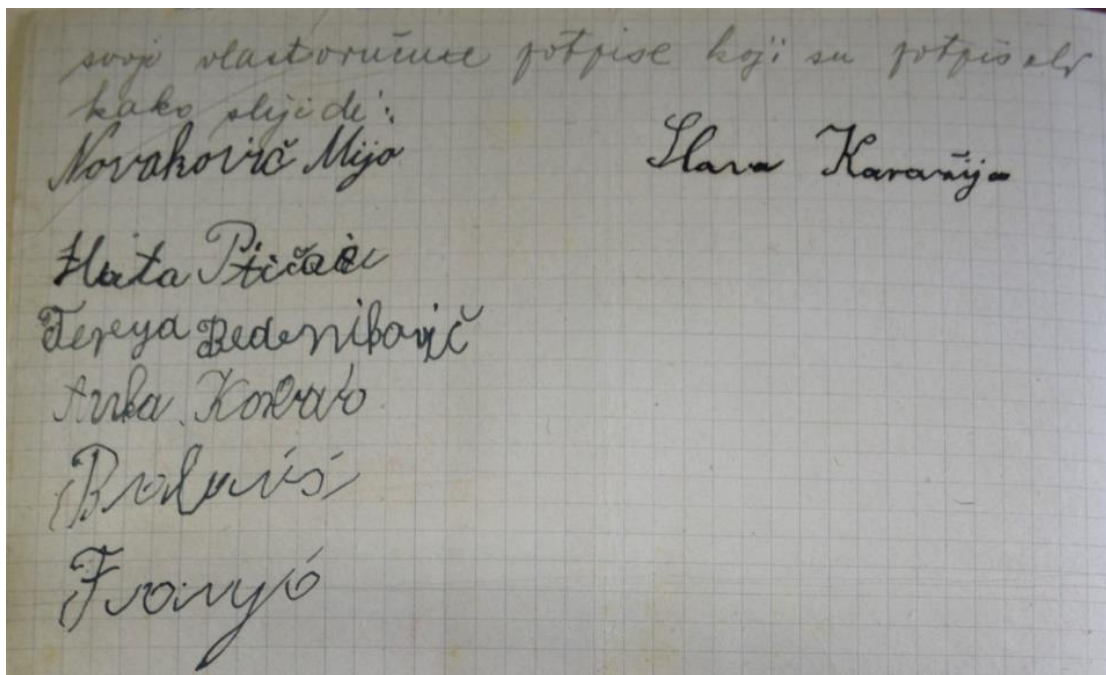 svoje vlastoručne potpise koji su potpisali
kako slijedi:
Novaković Mijo
Slava Karažija
Zlata Ptiček
Tereza Bedeniković
Anka Kovač
Franjo